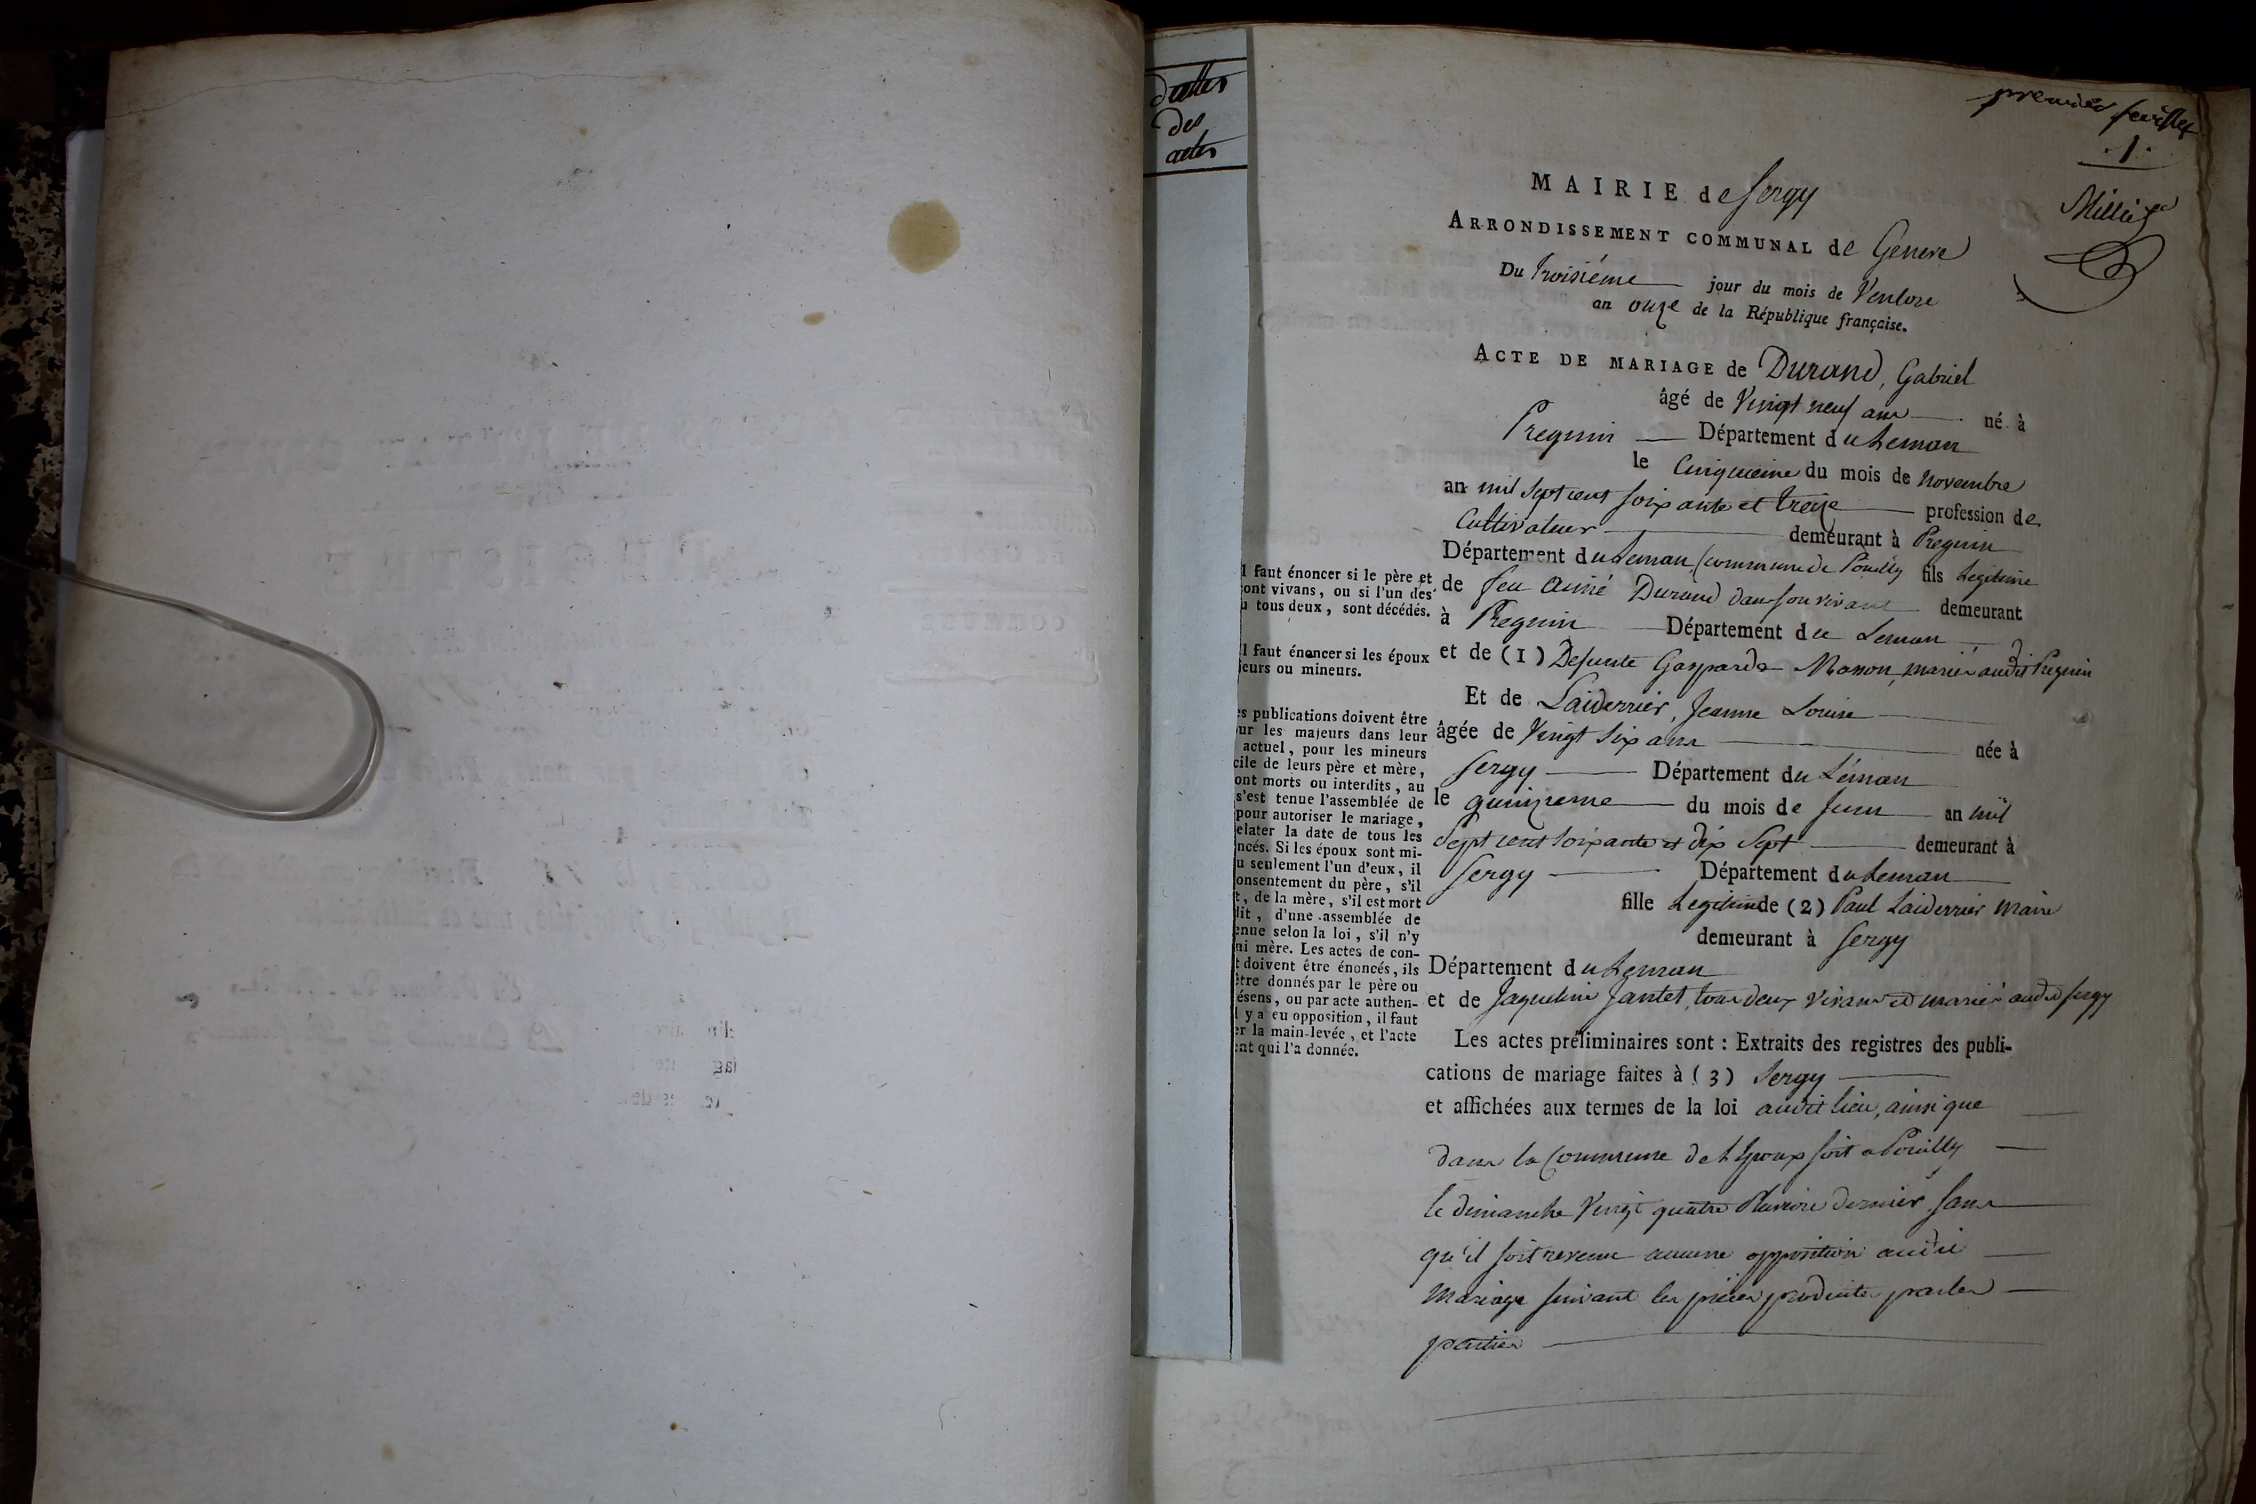 dattes
des
actes
premier feuillet
1
MAIRIE de Sergy
ARRONDISSEMENT COMMUNAL de Geneve
Du troisiéme jour du mois de Ventose
an onze de la République française.
ACTE DE MARIAGE de Durand, Gabriel
âgé de Vingt neuf ans né à
Pregnin Département du Leman
le Cinquieme du mois de Novembre
an mil Sept cent soixante et treize profession de
Cultivateur demeurant à Pregnin
Département du Leman, Commune de Pouilly fils Legitime
de feu Aimé Durand dans son vivant demeurant
à Pregnin Département du Leman
et de (1) Defunte Gasparde Monon, mariés audit Pregnin
Et de Laiderrier, Jeanne Louise
âgée de Vingt six ans née à
Sergy Département du Léman
le quinzieme du mois de Juin an mil
Sept cent soixante et dix Sept demeurant à
Sergy Département du Leman
fille Legitime de (2) Paul Laiderrier Maire
demeurant à Sergy
Département du Leman
et de Jaqueline Jantet, tous deux vivans et mariés audit Sergy
Les actes préliminaires sont : Extraits des registres des publi-
cations de mariage faites à (3) Sergy
et affichées aux termes de la loi audit lieu, ainsi que
dans la Commune de soit a Pouilly
le dimanche Vingt quatre Pluviose dernier, sans
qu'il soit revenu aucune opposition audit
Mariage suivant les pièces produites par les
parties
l faut énoncer si le père et
ont vivans, ou si l'un des
u tous deux, sont décédés.
l faut énoncer si les époux
jeurs ou mineurs.
es publications doivent être
ur les majeurs dans leur
actuel, pour les mineurs
cile de leurs père et mère,
ont morts ou interdits, au
s'est tenue l'assemblée de
pour autoriser le mariage,
elater la date de tous les
ncés. Si les époux sont mi-
u seulement l'un d'eux, il
onsentement du père, s'il
t, de la mère, s'il est mort
dit, d'une assemblée de
enue selon la loi, s'il n'y
ni mère. Les actes de con-
t doivent être énoncés, ils
être donnés par le père ou
ésens, ou par acte authen-
l y a eu opposition, il faut
er la main-levée, et l'acte
ent qui l'a donnée.